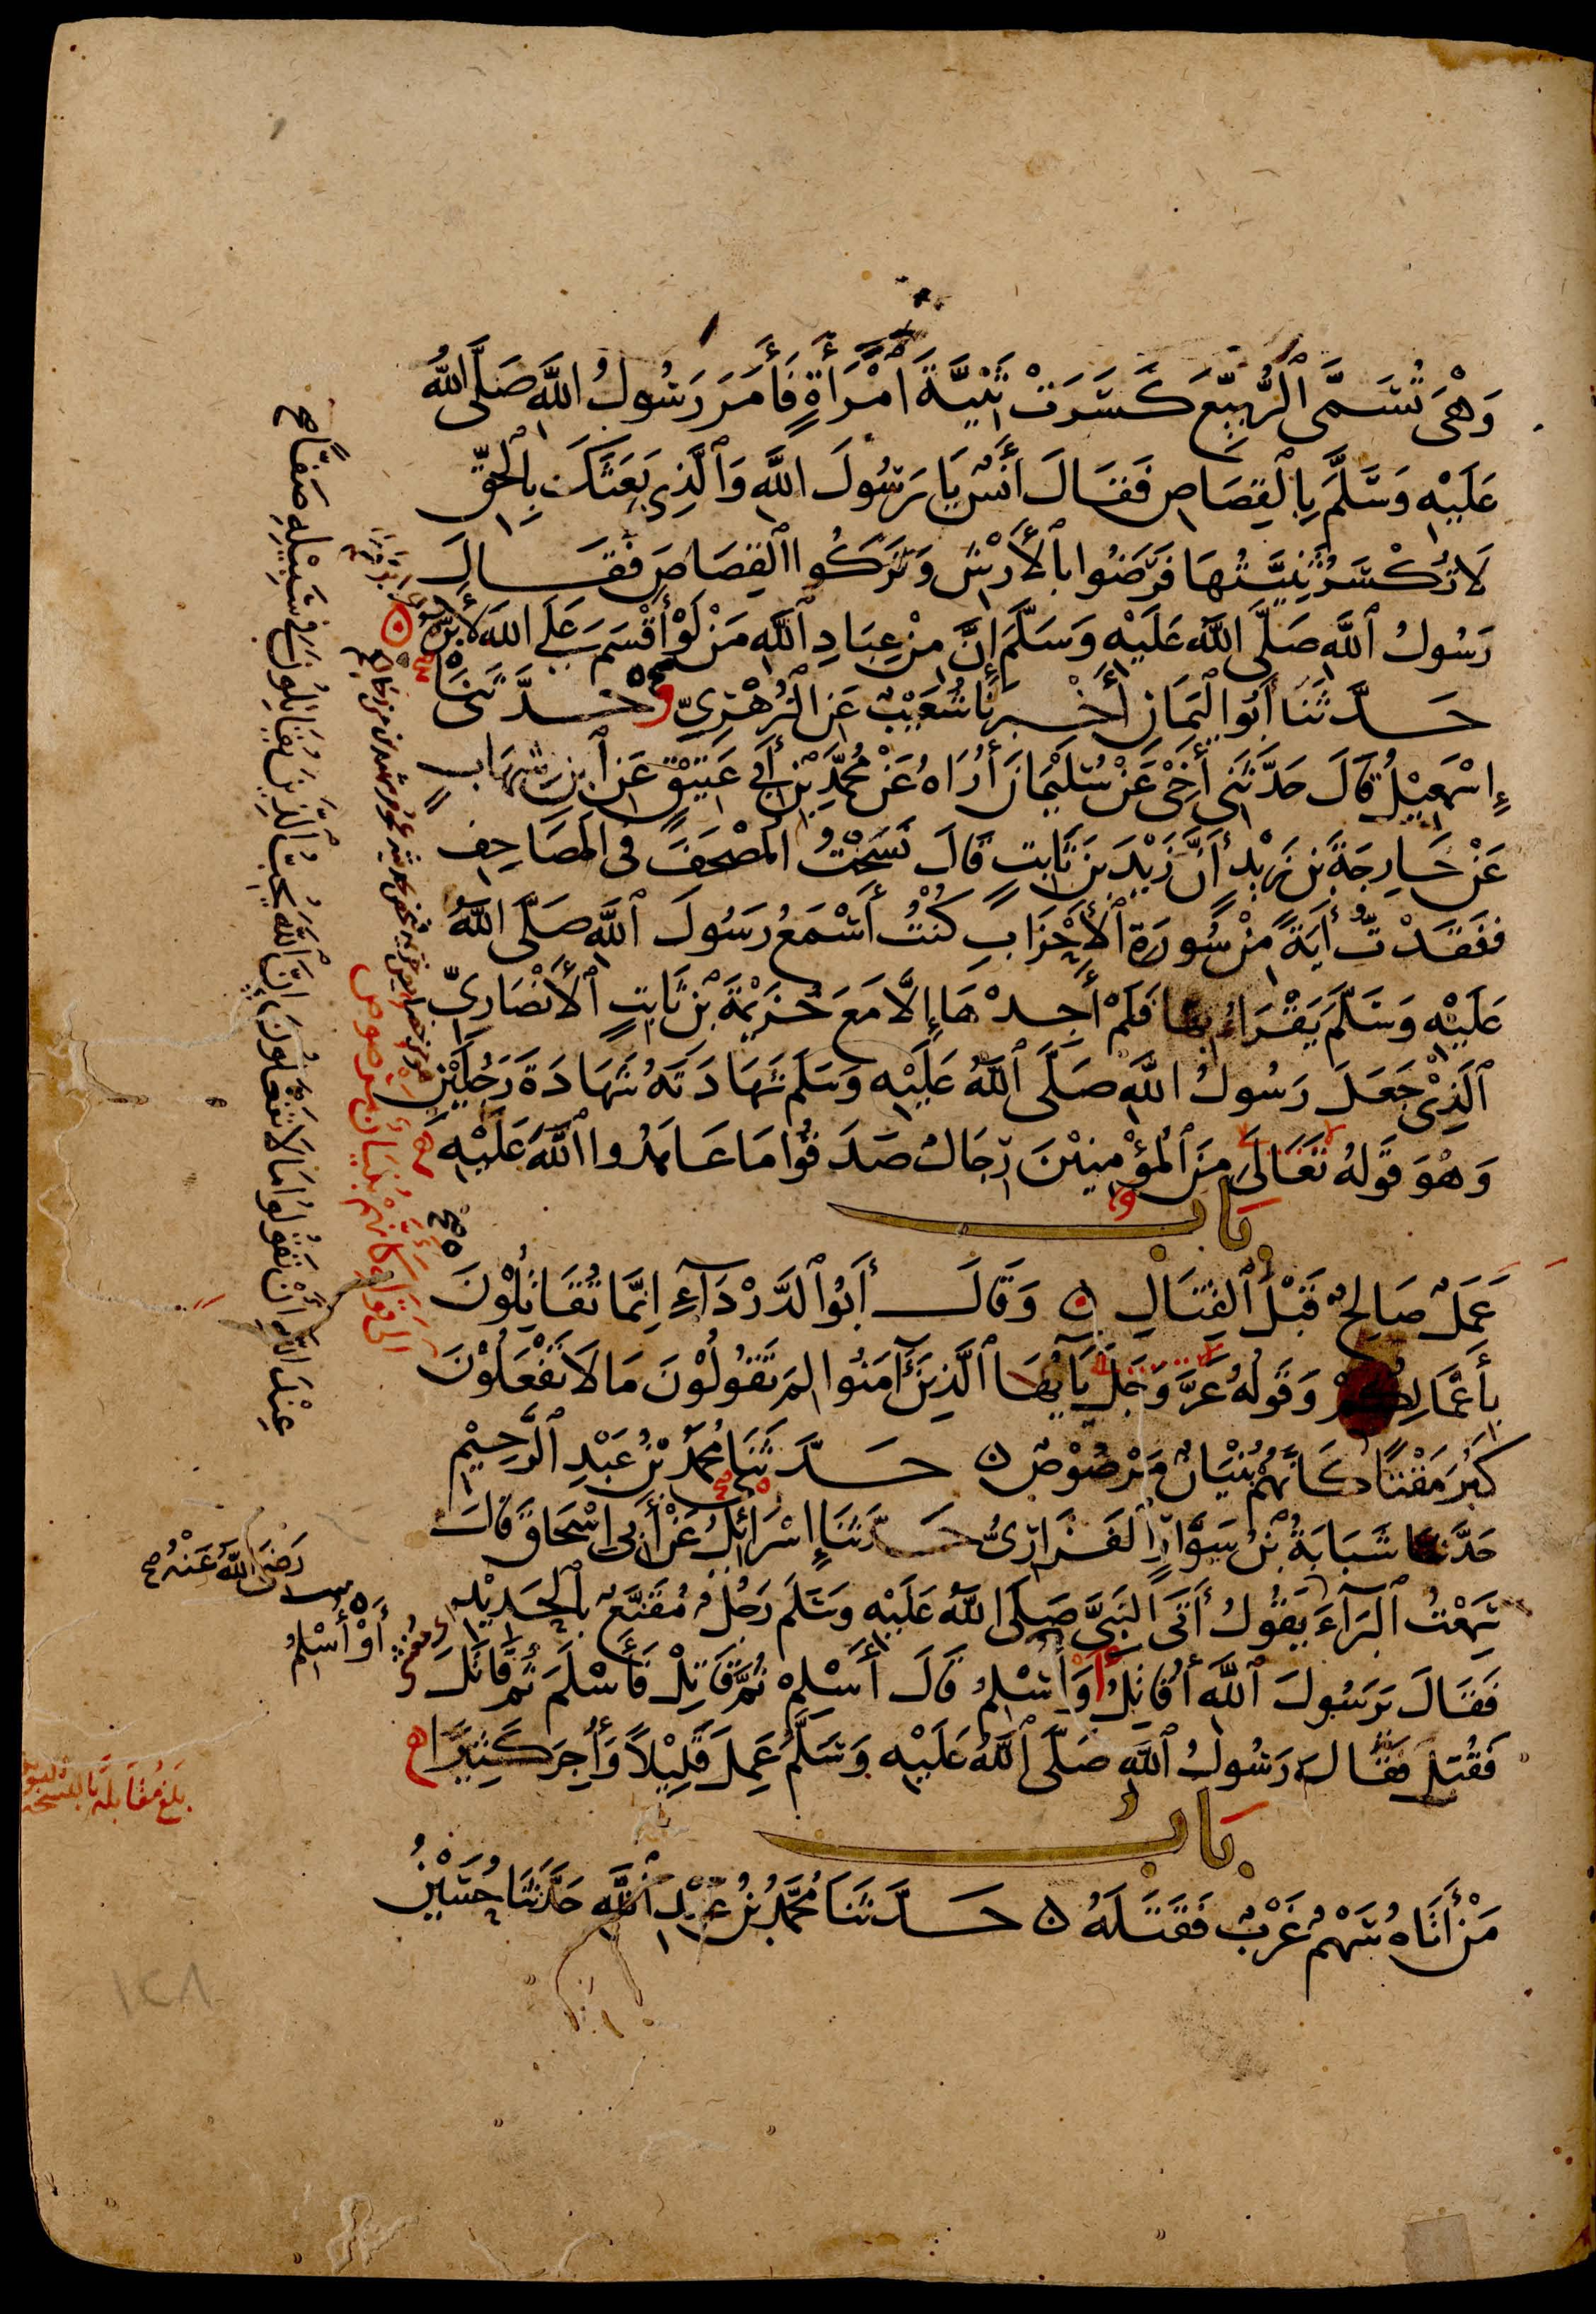 وَهْىَ تُسَمَّى ٱلرُّبَيِّعَ كَسَرَتْ ثَنِيَّةَ ٱمْرَأَةٍ فَأَمَرَ رَسُولُ ٱللَّهِ صَلَّى ٱللَّهُ
عَلَيْهِ وَسَلَّمَ بِٱلْقِصَاصِ فَقَالَ أَنَسٌ يَا رَسُولَ ٱللَّهِ وَٱلَّذِى بَعَثَكَ بِٱلْحَقِّ
لَا تُكْسَرُ ثَنِيَّتُهَا فَرَضُوا بِٱلْأَرْشِ وَتَرَكُوا ٱلْقِصَاصَ فَقَالَ
رَسُولُ ٱللَّهِ صَلَّى ٱللَّهُ عَلَيْهِ وَسَلَّمَ إِنَّ مِنْ عِبَادِ ٱللَّهِ مَنْ لَوْ أَقْسَمَ عَلَى ٱللَّهِ لَأَبَرَّهُ
حَدَّثَنَا أَبُو ٱلْيَمَانِ أَخْبَرَنَا شُعَيْبٌ عَنِ ٱلزُّهْرِيِّ وحَدَّثَنَا
إِسْمَعِيْلُ قَالَ حَدَّثَنِى أَخِى عَنْ سُلَيْمَانَ أُرَاهُ عَنْ مُحَمَّدِ بْنِ أَبِى عَتِيْقٍ عَنِ ٱبْنِ شِهَابٍ
عَنْ خَارِجَةَ بْنِ زَيْدٍ أَنَّ زَيْدَ بْنَ ثَابِتٍ قَالَ نَسَخْتُ ٱلْمُصْحَفَ فِى ٱلْمَصَاحِفِ
فَفَقَدْتُ أَيَةً مِنْ سُورَةِ ٱلْأَحْزَابِ كُنْتُ أَسْمَعُ رَسُولَ ٱللَّهِ صَلَّى ٱللَّهُ
عَلَيْهِ وَسَلَّمَ يَقْرَاءُ بِهَا فَلَمْ أَجِدْهَا إِلَّا مَعَ خُزَيْمَةَ بْنِ ثَابِتٍ ٱلْأَنْصَارِيِّ
ٱلَّذِيْ جَعَلَ رَسُولُ ٱللَّهِ صَلَّى ٱللَّهُ عَلَيْهِ وَسَلَّمَ شَهَادَتَهُ شَهَادَةَ رَجُلَيْنِ
وَهُوَ قَوْلُهُ تَعَالَى مِنَ ٱلْمُؤْمِنِيْنَ رِجَالٌ صَدَقُوا مَا عَاهَدُوا ٱللَّهَ عَلَيْهِ
بَاب
عَمَلٌ صَالِحٌ قَبْلَ ٱلْقِتَالِ وَقَالَ أَبُو ٱلدَّرْدَآءِ إِنَّمَا تُقَاتِلُوْنَ
بِأَعْمَالِكُمْ وَقَوْلُهُ عَزَّ وَجَلَّ يَآأَيُّهَا ٱلَّذِيْنَ آمَنُوا لِمَ تَقُولُوْنَ مَا لَا تَفْعَلُوْنَ
كَبُرَ مَقْتًا كَأَنَّهُمْ بُنْيَانٌ مَرْصُوْصٌ حَدَّثَنَا مُحَمَّدُ بْنُ عَبْدِ ٱلرَّحِيْمِ
حَدَّثَنَا شَبَابَةُ بْنُ سَوَّارٍ ٱلْفَزَارِىُّ حَدَّثَنَا إِسْرَائِلُ عَنْ أَبِى إِسْحَاقَ قَالَ
سَمِعْتُ ٱلْبَرَآءَ يَقُولُ أَتَى ٱلنَّبِىَّ صَلَّى ٱللَّهُ عَلَيْهِ وَسَلَّمَ رَجُلٌ مُقَنَّعٌ بِٱلْحَدِيْدِ
فَقَالَ يَرَسُولَ ٱللَّهِ أُقَاتِلُ أَوْ أُسْلِمُ قَالَ أَسْلِمْ ثُمَّ قَاتِلْ فَأَسْلَمَ ثُمَّ قَاتَلَ
فَقُتِلَ فَقَالَ رَسُولُ ٱللَّهِ صَلَّى ٱللَّهُ عَلَيْهِ وَسَلَّمَ عَمِلَ قَلِيْلاً وَأُجِرَ كَثِيْرًا
بَاب
مَنْ أَتَاهُ سَهْمٌ غَرْبٌ فَقَتَلَهُ حَدَّثَنَا مُحَمَّدُ بْنُ عَبْدِ ٱللَّهِ حَدَّثَنَا حُسَيْنُ
إلى قوله كأنهم بنيان مرصوص
عِنْدَ ٱللَّهِ أَنْ تَقُولُوا مَا لَا تَفْعَلُونَ إِنَّ ٱللَّهَ يُحِبُّ ٱلَّذِينَ يُقَاتِلُونَ فِى سَبِيْلِهِ صَفًّا
رَضِىَ ٱللَّهُ عَنْهُ
أَوْ أُسْلِمُ
بَلَغَ مُقَابَلَةً
١٢٨